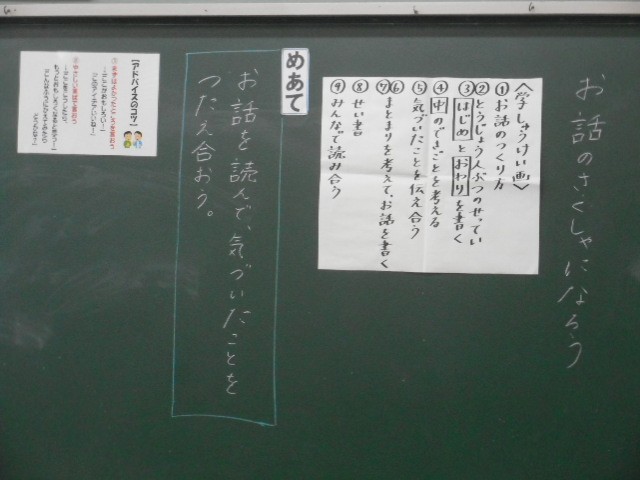 お話のさくしゃになろう
〈学しゅうけい画〉
①お話のつくり方
②とうじょう人ぶつのせってい
③はじめとおわりを書く
④中のできごとを考える
⑤気づいたことを伝え合う
⑥
⑦まとまりを考えて、お話を書く
⑧せい書
⑨みんなで読み合う
めあて
お話を読んで、気づいたことを
つたえ合おう。
【アドバイスのコツ】
①まずはよかったところを言おう
②やさしい言ばで言おう